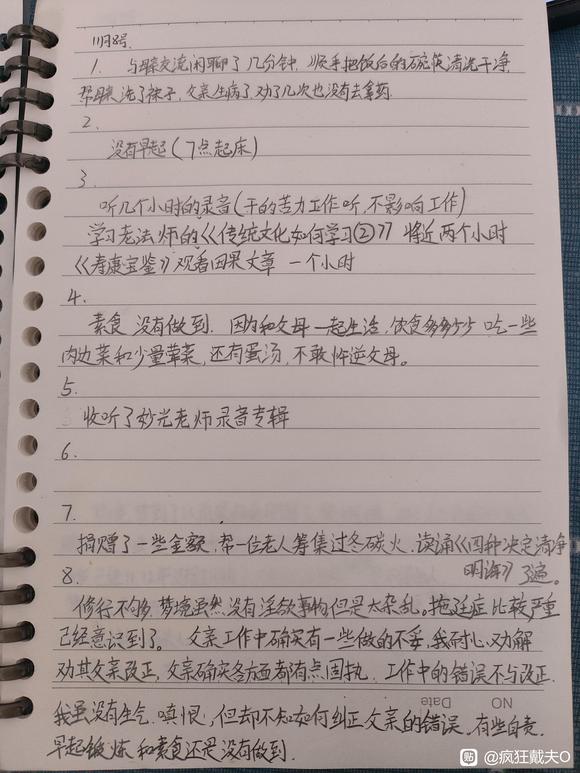 11月8号.
1. 与母亲交流闲聊了几分钟,顺手把饭后的碗筷清洗干净
帮母亲洗了袜子,父亲生病了劝了几次也没有去拿药.
2.
没有早起(7点起床)
3.
听几个小时的录音(干的苦力工作听,不影响工作)
学习老法师的《《传统文化如何学习②》》将近两个小时
《寿康宝鉴》观看因果文章 一个小时
4.
素食 没有做到. 因为和父母一起生活,饮食多多少少 吃一些
肉边菜和少量荤菜,还有蛋汤,不敢忤逆父母。
5.
收听了妙光老师录音专辑
6.
7.
捐赠了一些金额,帮一位老人筹集过冬碳火.读诵《四种决定清净
明诲》了遍。
8.
修行不够多,梦境虽然没有淫欲事物但是太杂乱。拖延症比较严重
已经意识到了。 父亲工作中确实有一些做的不妥,我耐心劝解
劝其父亲改正,父亲确实各方面都有点固执. 工作中的错误不与改正.
NO
Date
我虽没有生气.嗔恨,但却不知如何纠正父亲的错误,有些自责.
早起锻炼和素食还是没有做到.
贴 @疯狂戴夫O